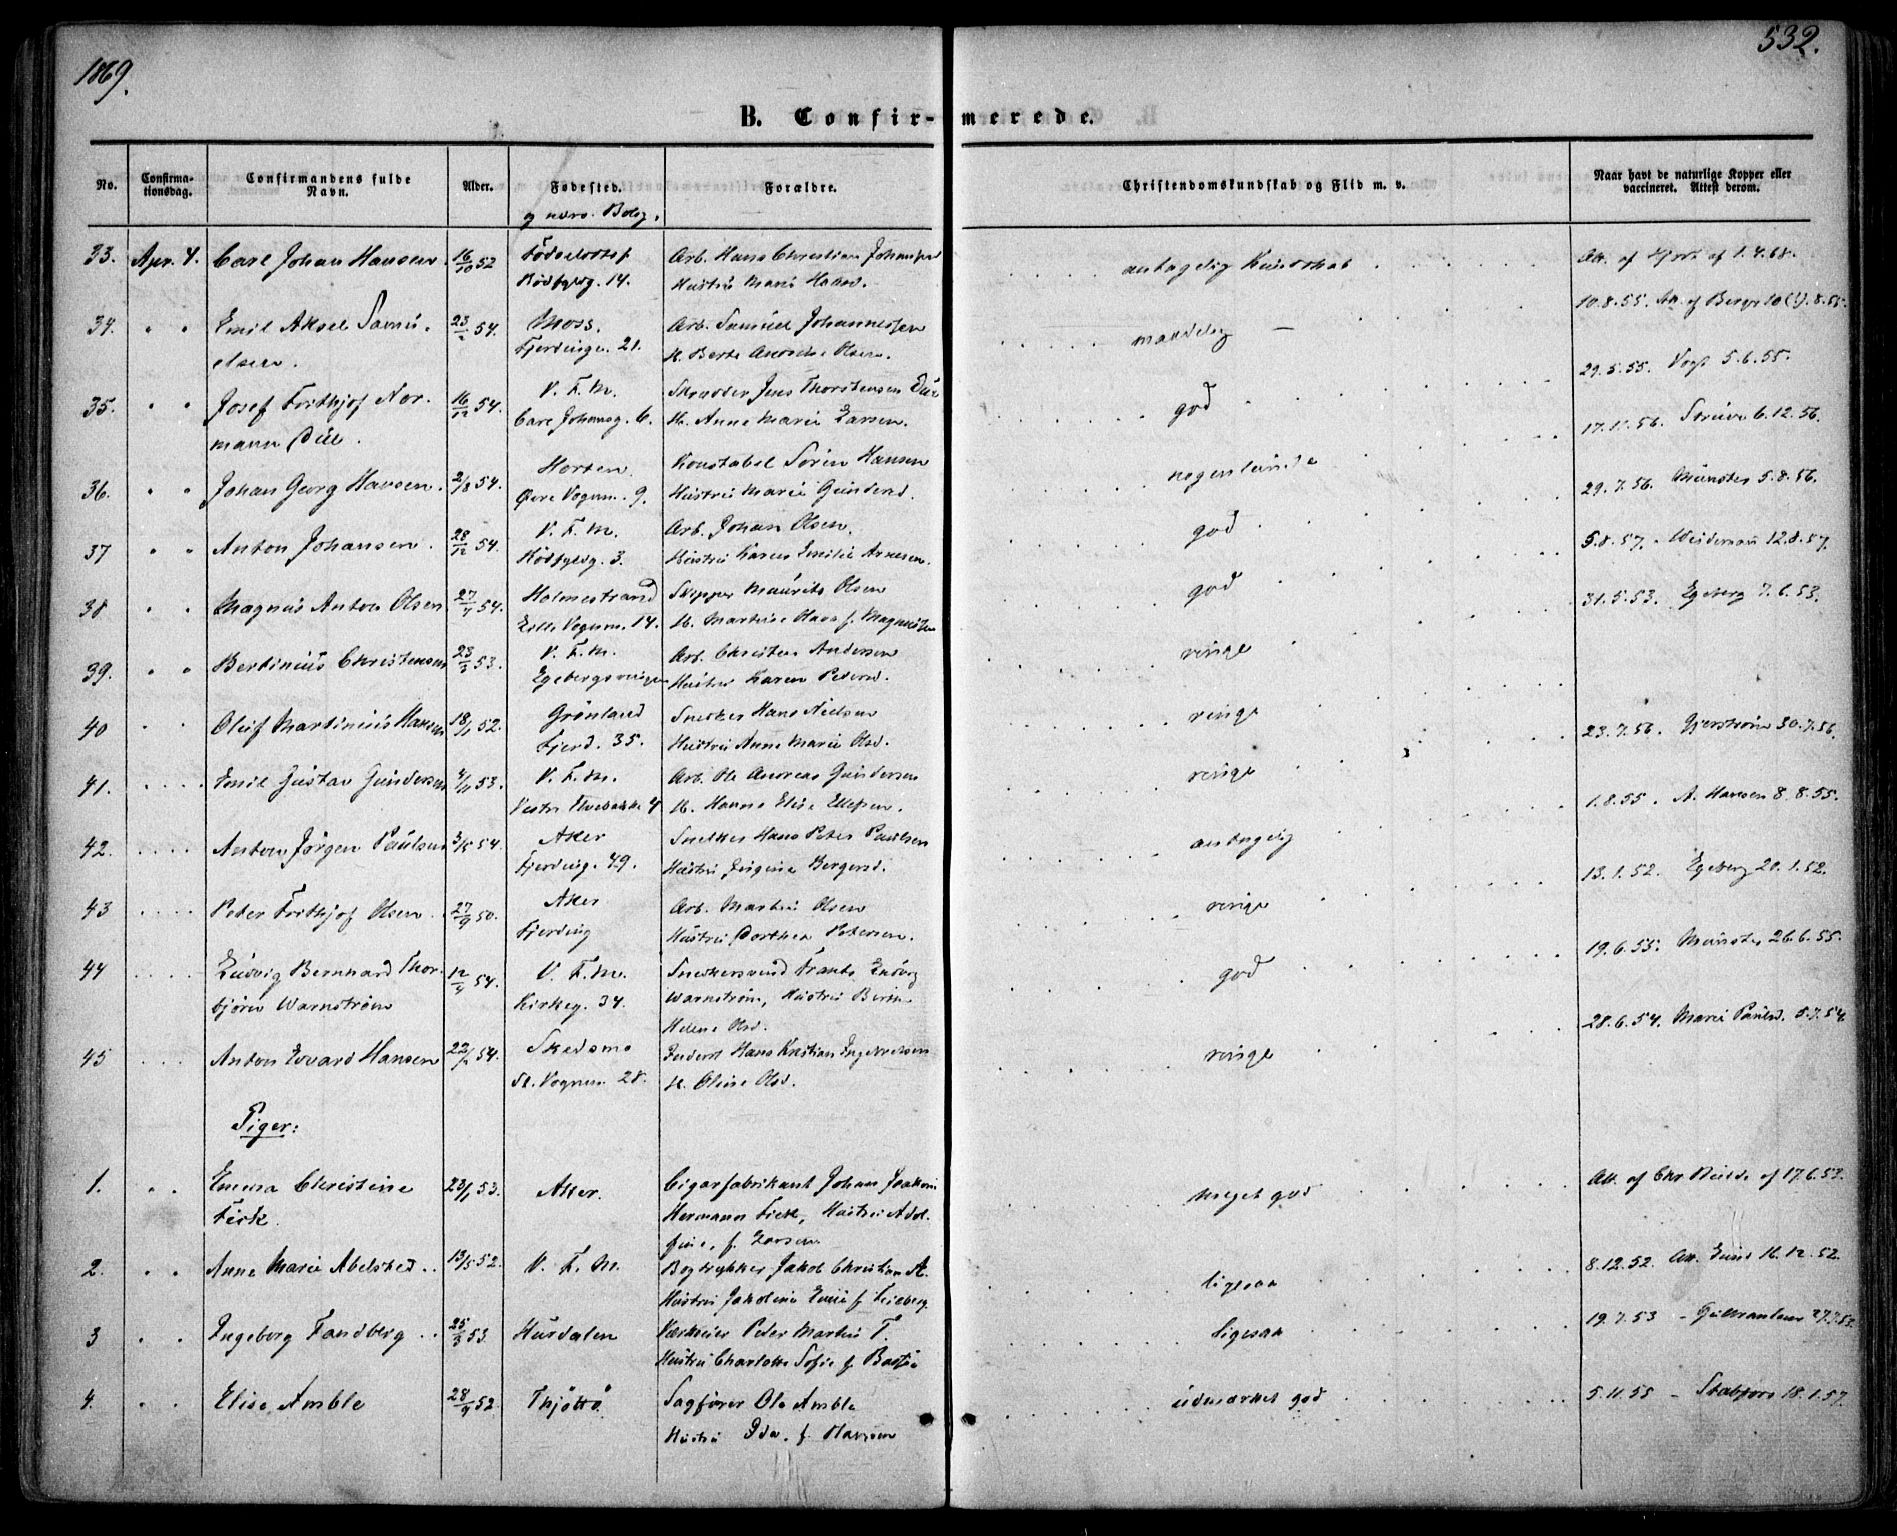 1869.
532.
B. Confir-merede.
No.
Confirma-
tionsdag.
Confirmandens fulde
Navn.
Alder.
Fødested.
og nærv. Bolig.
Forældre.
Christendomskundskab og Flid m. v.
Naar havt de naturlige Kopper eller
vaccineret. Attest derom.
33. Apr. 4. Carl Johan Hansen 16/10 52 Fødselsstif Arb. Hans Christian Johansen antagelig Kundskab Att. af Hjort af 1.4.68.
Rödfyldg. 14. Hustru Marie Hansd.
10.8.55. Att. af Bergs 10(?).8.55.
34. " " Emil Aksel Samu- 23/2 54. Moss. Arb. Samuel Johannessen maadelig –
elsen. Fjerdinge. 21. H. Berte Andrine Olsen.
29.5.55. Vogt 5.6.55.
35. " " Josef Frithjof Nor- 16/12 54. V. F. M. Skrædder Jens Thorstensen Due god
mann Due. Carl Johansg. 6. H. Anne Marie Larsen.
17.11.56. Strüve 6.12.56.
36. " " Johan Georg Hansen. 2/8 54. Horten Konstabel Sören Hansen nogenlunde
Øvre Vognm. 9. Hustru Marie Gundersd.
29.7.56. Münster 5.8.56.
37 " " Anton Johansen 28/12 54. V. F. M. Arb. Johan Olsen god
Rödfyldg. 3. Hustru Karen Emilie Arnesen.
5.8.57. - Weidemann 12.8.57.
38 " " Magnus Anton Olsen 27/7 54. Holmestrand Skipper Maurits Olsen god
Lille Vognm. 14. H. Martine Olava f. Magnussen
31.5.53. Egeberg 7.6.53.
39. " " Bertinius Christensen 23/3 53. V. F. M. Arb. Christen Andersen ringe
Egebergsveien Hustru Karen Petersd.
40 " " Oluf Martinius Hansen 18/1 52. Grönland Snedker Hans Nielsen ringe
Fjerd. 35. Hustru Anne Marie Olsd.
23.7.56. Gjerström 30.7.56.
41. Emil Gustav Gundersen 4/11 53. V. F. M. Arb. Ole Andreas Gundersen ringe
Vestre Elvebakke 4 H. Hanna Elise Ellefsen.
1.8.55. A. Hansen 8.8.55.
42. Anton Jörgen Paulsen 3/5 54. Aker Snedker Hans Peter Paulsen antagelig
Fjerding. 49. Hustru Jörgine Bergersd.
13.1.52. Egeberg 20.1.52.
43 Peter Frithjof Olsen 27/9 50. Aker Arb. Martin Olsen ringe
Fjerding Hustru Dorthea Petersen.
19.6.55. Münster 26.6.55.
44 Ludvig Bernhard Thor- 12/9 54. V. F. M. Snedkersvend Frants Ludvig god
björn Warnström Kirkeg. 34. Warnström, Hustru Berthe
Helene Olsd.
28.6.54. Marie Paulsd. 5.7.54.
45 Anton Edvard Hansen 22/2 54. Skedsmo Inderst Hans Kristian Ingebretsen ringe
St. Vognm. 28. H. Oline Olsd.
Piger:
1. " " Emma Christine 23/1 53. Aker. Cigarfabrikant Johan Joakim meget god Att. af Chr Heilde af 17.6.53.
Fick Hermann Fick, Hustru Adol-
fine, f. Larsen
2. " " Anne Marie Abelsted 13/5 52. V. F. M. Bogtrykker Jakob Christian A. ligesaa 8.12.52. Att. Lund 16.12.52.
Hustru Jakobine Emilie f. Feiberg
3 " " Ingeborg Fandberg 25/3 53. Hurdalen Værkeier Peter Martin F. ligesaa 19.7.53 - Gulbranson 27.7.53.
Hustru Charlotte Sofie f. Bastøe
4. " " Elise Amble 28/9 52 Thjöttö Sagförer Ole Amble udmærket god 5.11.55 - Stabfors 18.1.57.
Hustru Ida. f. Hansen